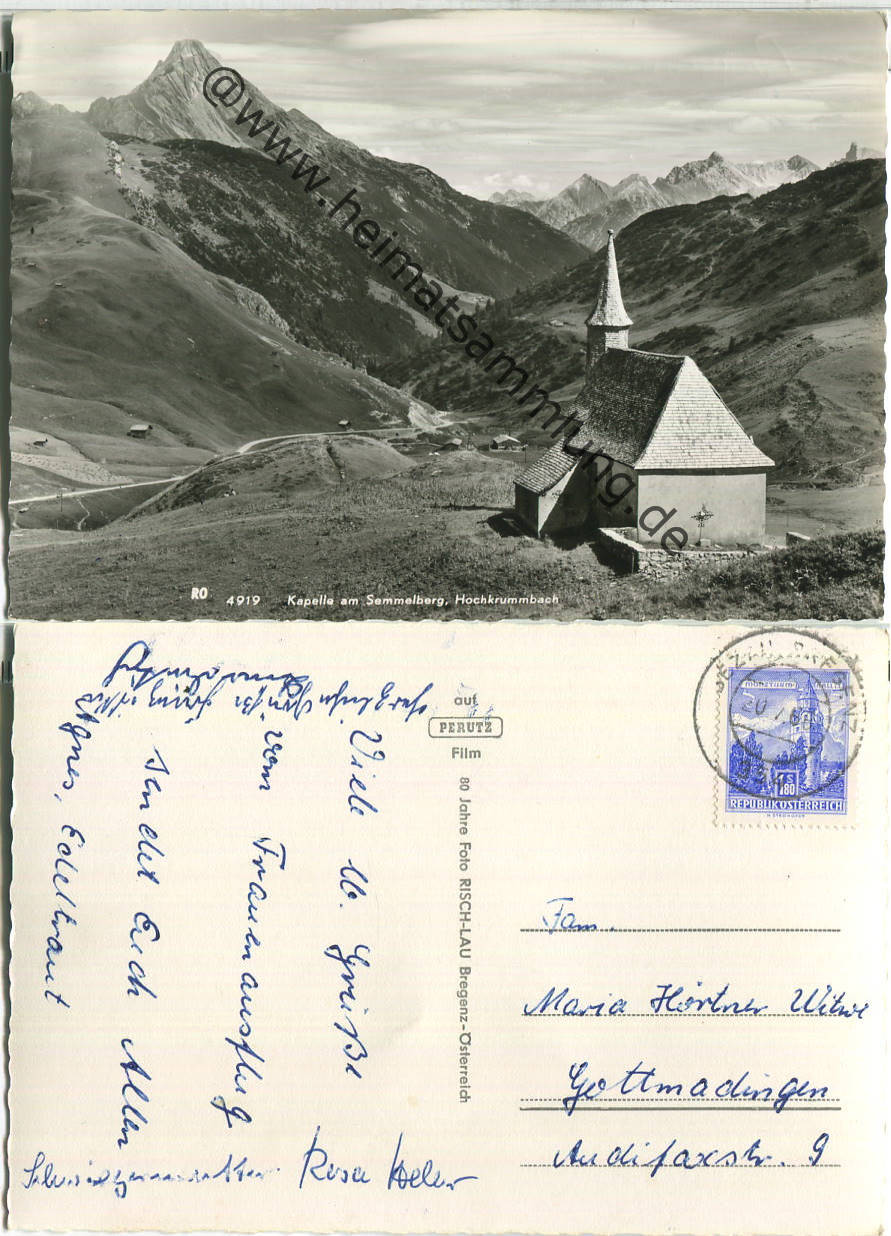 @www.heimatsammlung.de
RO 4919 Kapelle am Semmelberg, Hochkrummbach
auf
PERUTZ
Film
80 Jahre Foto RISCH-LAU Bregenz-Österreich
MÜNZTURM HALL
1,80
REPUBLIK ÖSTERREICH
Viele lb. Grüße
vom Frauenausflug
sendet Euch Allen
Agnes, Edeltraut
Rosa
Fam.
Maria Hörtner Witwe
Gottmadingen
Audifaxstr. 9